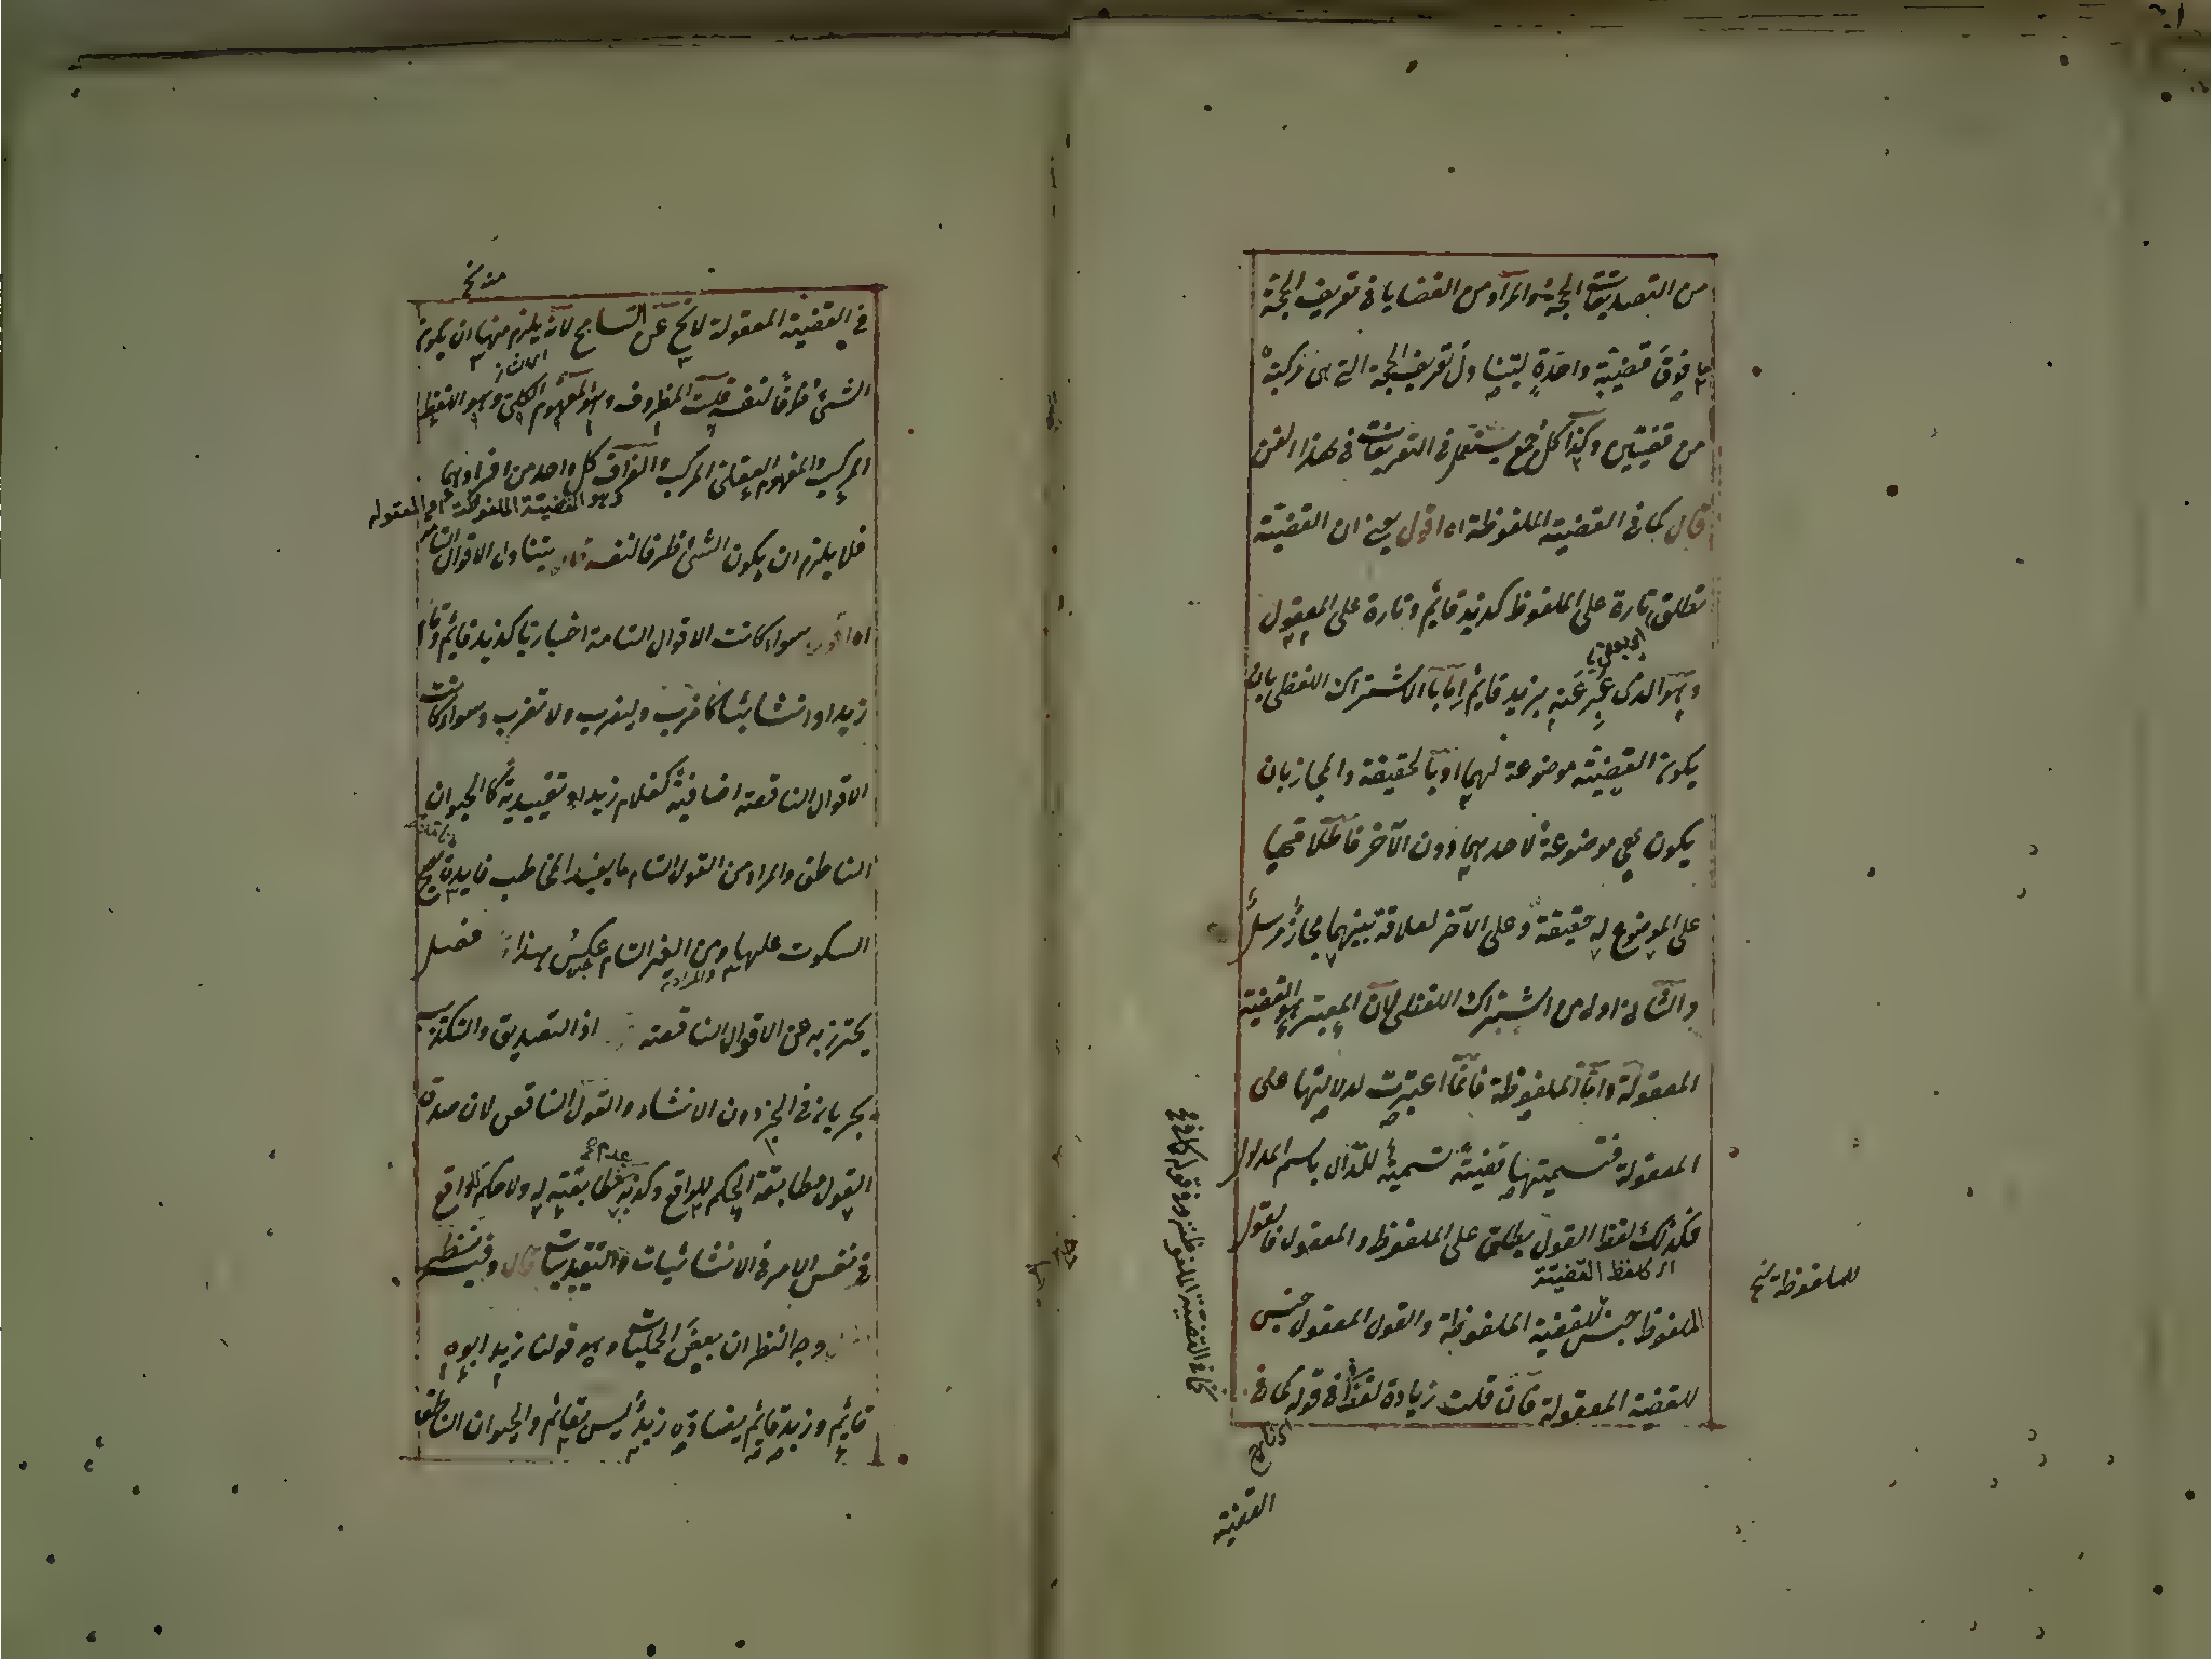 من التصديقات الحجة والمراد من القضايا في تعريف الحجة
ما فوق قضية واحدة ليتناول تعريف الحجة التي هي مركبة
من قضيتين وكذا كل جمع يستعمل في التعريفات في هذا الفن
قال كما في القضية الملفوظة اه اقول يعني ان القضية
تطلق تارة على الملفوظ كزيد قائم وتارة على المعقول
وهو الذي عبر عنه بزيد قائم اما بالاشتراك اللفظي بان
يكون القضية موضوعة لهما او بالحقيقة والمجاز بان
يكون هي موضوعة لاحدهما دون الآخر فاطلاقها
على الموضوع له حقيقة وعلى الآخر لعلاقة بينهما مجاز مرسل
والثاني اولى من الاشتراك اللفظي لان المعتبر هو القضية
المعقولة واما الملفوظة فانما اعتبرت لدلالتها على
المعقولة فتسميتها قضية تسمية للدال باسم المدلول
فكذلك لفظ القول يطلق على الملفوظ والمعقول فالقول
اى كلفظ القضية
الملفوظ جنس للقضية الملفوظة والقول المعقول جنس
للقضية المعقولة فان قلت زيادة لفظ في قوله كما في
للملفوظة نخ
القضية
في القضية المعقولة لا يخ عن التسامح لانه يلزم منها ان يكون
الشئ ظرفا لنفسه قلت المظروف وهو المفهوم الكلي وهو اللفظ
المركب والمفهوم العقلي المركب والظرف كل واحد من افرادهما
وهو القضية الملفوظة والمعقولة
فلا يلزم ان يكون الشئ ظرفا لنفسه قال يتناول الاقوال التامة
اه اقول سواء كانت الاقوال التامة اخباريا كزيد قائم وقام
زيد او انشائيا كاضرب وليضرب ولا تضرب وسواء كانت
الاقوال الناقصة اضافية كغلام زيد او تقييدية كالحيوان
الناطق والمراد من القول التام ما يفيد المخاطب فايدة يصح
السكوت عليها ومن الغير التام عكس هذا فصل
يحترز به عن الاقوال الناقصة اذ التصديق والتكذيب
يجريان في الخبر دون الانشاء والقول الناقص لان صدق
القول مطابقة الحكم للواقع وكذبه عدم مطابقته له ولا حكم للواقع
في نفس الامر في الانشائيات والتقييديات قال وفيه نظر
وجه النظر ان بعض الحمليات وهو قولنا زيد ابوه
قائم وزيد قايم يضاده زيد ليس بقائم والحيوان الناطق